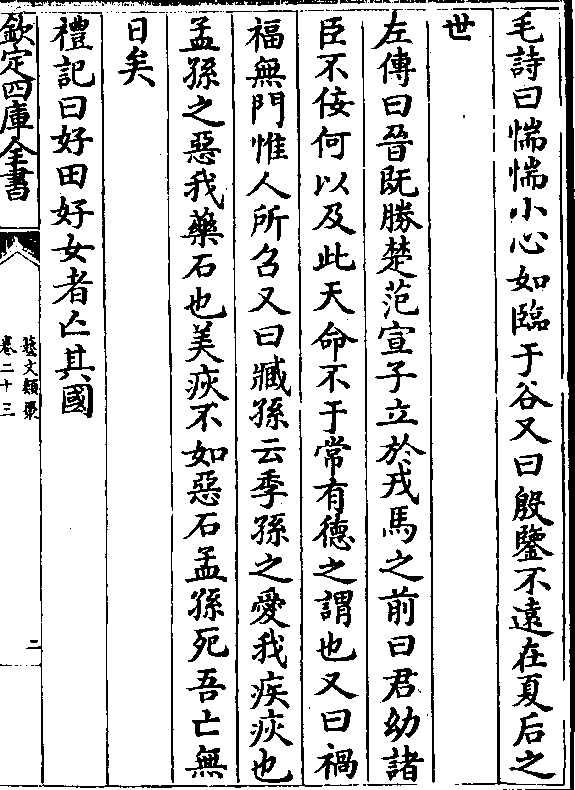 毛詩曰惴惴小心如臨于谷又曰殷鑒不遠在夏后之
世
左傳曰晉既勝楚范宣子立於戎馬之前曰君幼諸
臣不佞何以及此天命不于常有德之謂也又曰禍
福無門惟人所召又曰臧孫云季孫之愛我疾疢也
孟孫之惡我藥石也美疢不如惡石孟孫死吾亡無
日矣
禮記曰好田好女者亡其國
欽定四庫全書
藝文類聚
卷二十三
二